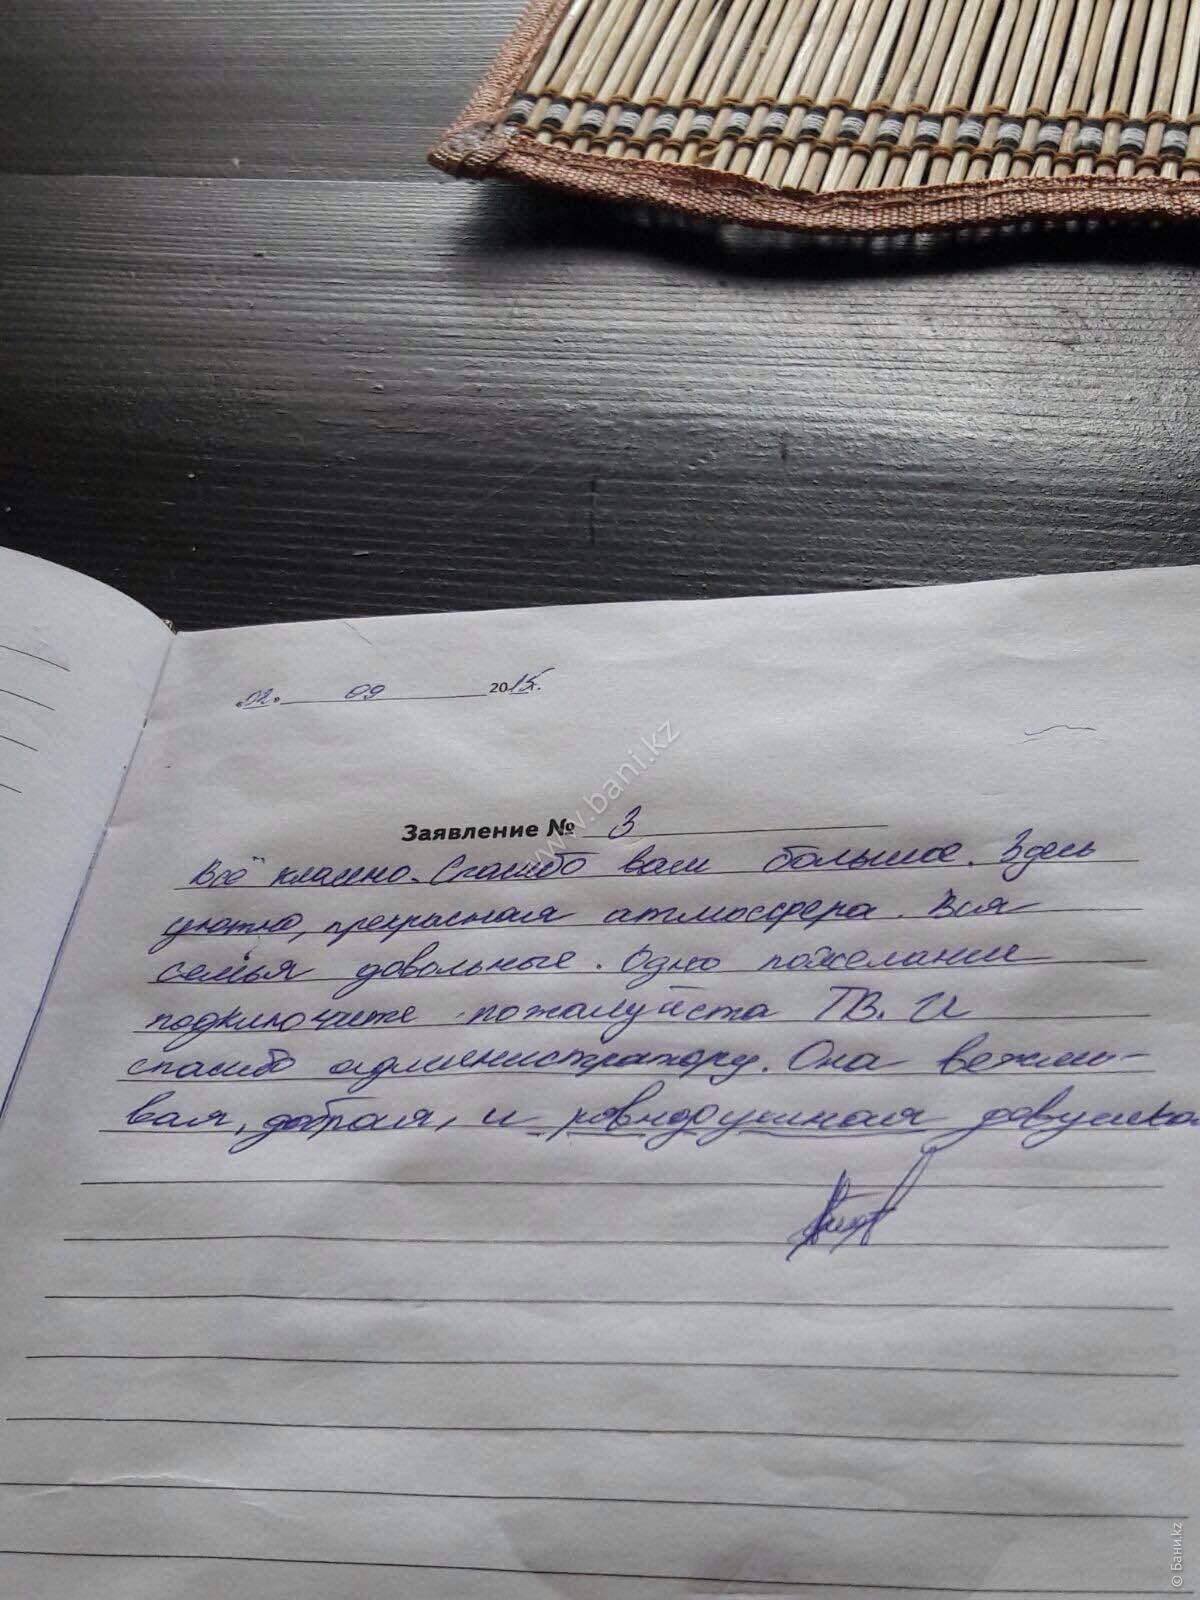 «02» 09 2015.
www.bani.kz
Заявление № 3
Всё классно. Спасибо вам большое. Здесь
уютно, прекрасная атмосфера. Вся
семья довольные. Одно пожелание
подключите пожалуйста ТВ. И
спасибо администратору. Она вежли-
вая, добрая, и равнодушная девушка.
© Бани.kz